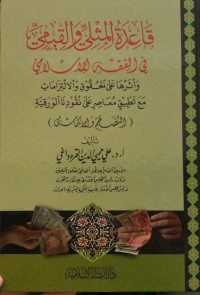 قاعدة المثلي والقيمي
في الفقه الإسلامي
وأثرها على الحقوق والالتزامات
مع تطبيق معاصر على نقودنا الورقية
(التضخم والانكماش)
تأليف
أ.د. علي محيي الدين القره داغي
دار البشائر الإسلامية